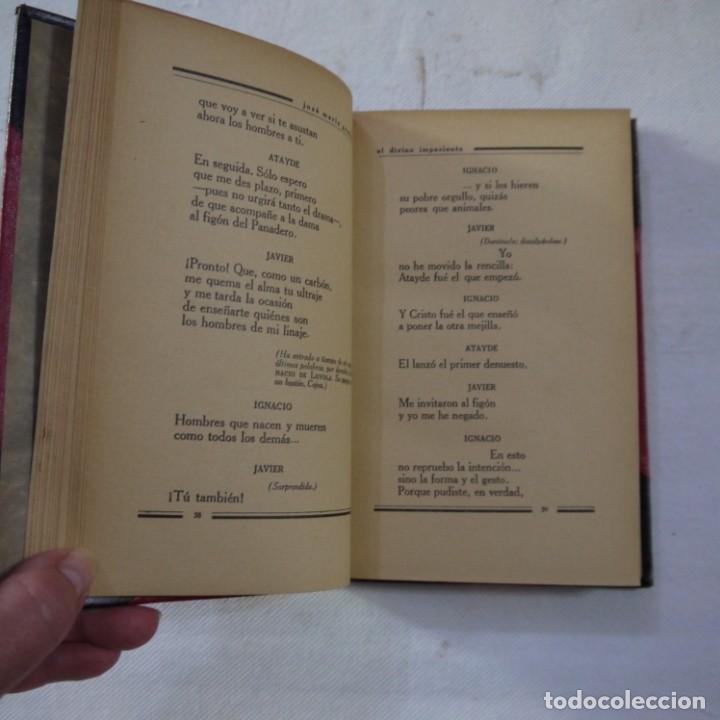 josé maría
que voy a ver si te asustan
ahora los hombres a ti.
ATAYDE
En seguida. Sólo espero
que me des plazo, primero
—pues no urgirá tanto el drama—,
de que acompañe a la dama
al figón del Panadero.
JAVIER
¡Pronto! Que, como un carbón,
me quema el alma tu ultraje
y me tarda la ocasión
de enseñarte quiénes son
los hombres de mi linaje.
(Ha entrado a tiempo de
últimas palabras, por
NACIO DE LOYOLA.
un bastón. Cojea.)
IGNACIO
Hombres que nacen y mueren
como todos los demás...
JAVIER
(Sorprendido.)
¡Tú también!
38
el divino impaciente
IGNACIO
... y si los hieren
su pobre orgullo, quizás
peores que animales.
JAVIER
(Dominado: disculpándose.)
Yo
no he movido la rencilla:
Atayde fué el que empezó.
IGNACIO
Y Cristo fué el que enseñó
a poner la otra mejilla.
ATAYDE
El lanzó el primer denuesto.
JAVIER
Me invitaron al figón
y yo me he negado.
IGNACIO
En esto
no repruebo la intención...
sino la forma y el gesto.
Porque pudiste, en verdad,
39
todocoleccion